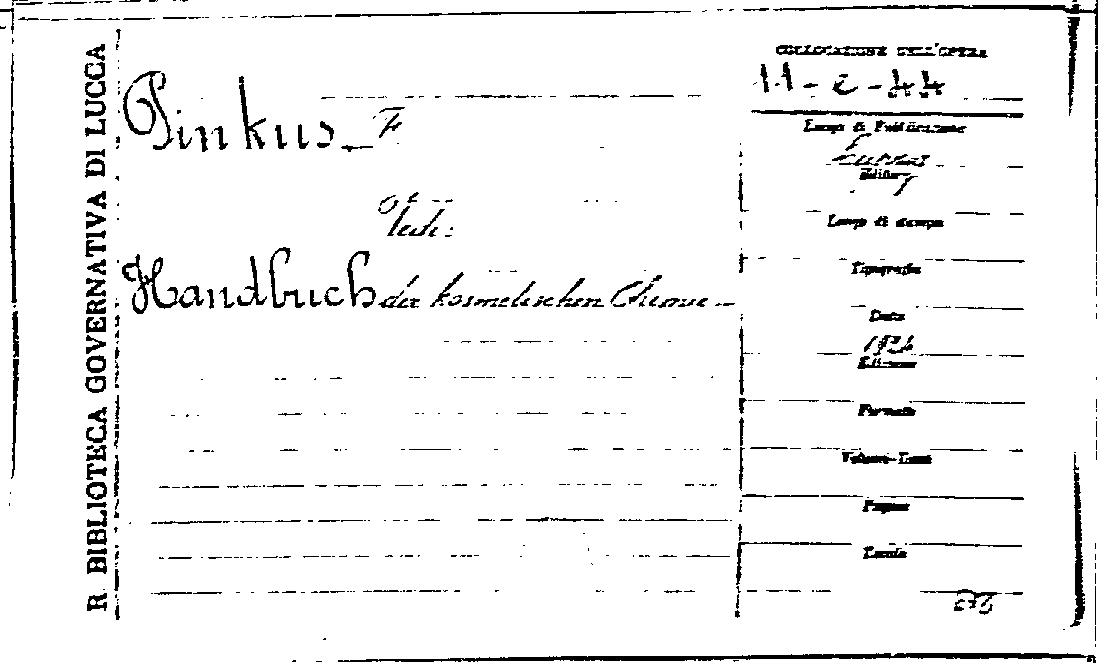 R BIBLIOTECA GOVERNATIVA DI LUCCA
Pinkus F
Vedi:
Handbuch der kosmetischen Chemie
COLLOCAZIONE DELL'OPERA
11-C-44
Luogo di Pubblicazione
Editore
Luogo di stampa
Tipografia
Data
Edizione
Formato
Volume-Tomi
Pagine
Tavole